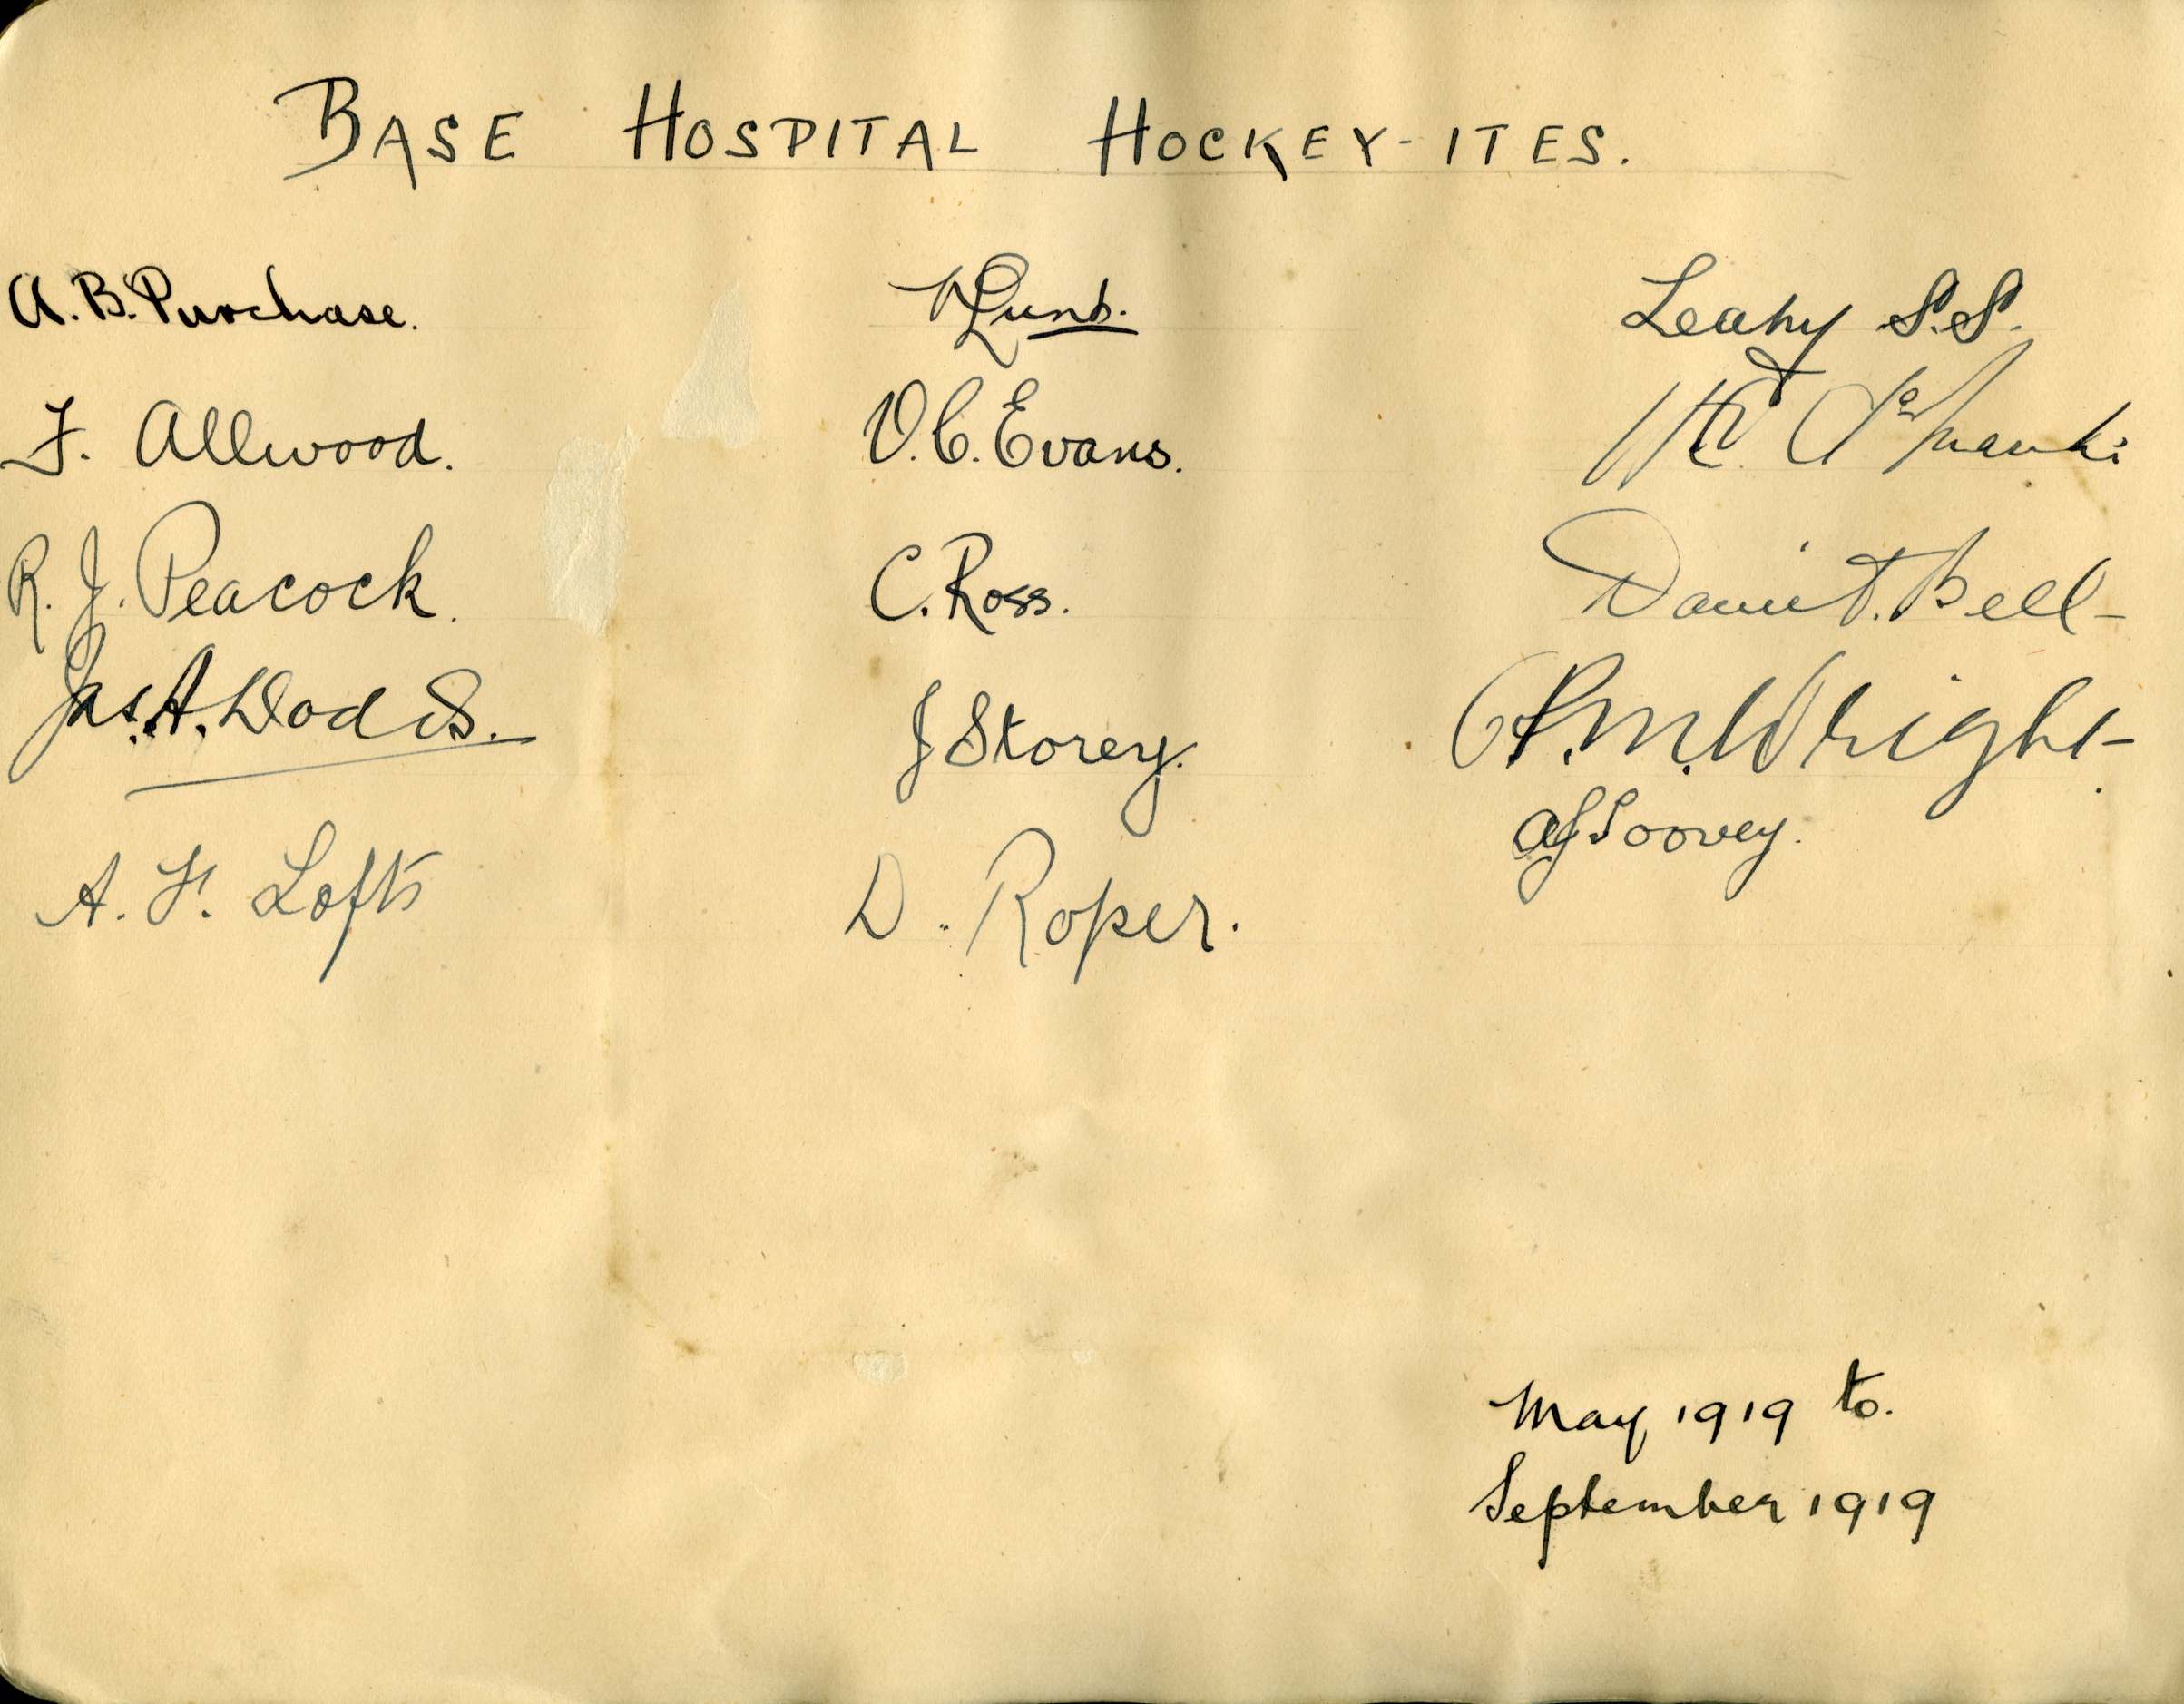 BASE HOSPITAL HOCKEY-ITES.
A. B. Purchase.
F. Allwood.
R. J. Peacock.
Jas. A. Dodds.
A. F. Lofts
Lunt.
V. C. Evans.
C. Ross.
J Storey.
D. Roper.
Leahy S.S.
T. Bell
P. M. Wright
May 1919 to.
September 1919